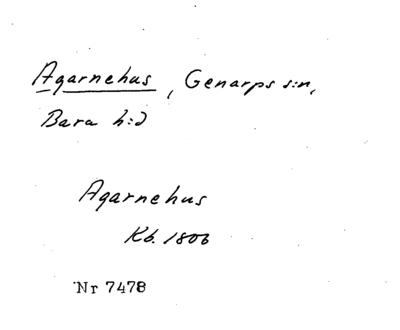 Agarnehus, Genarps s:n,
Bara h:d
Agarnehus
Kb. 1806
Nr 7478